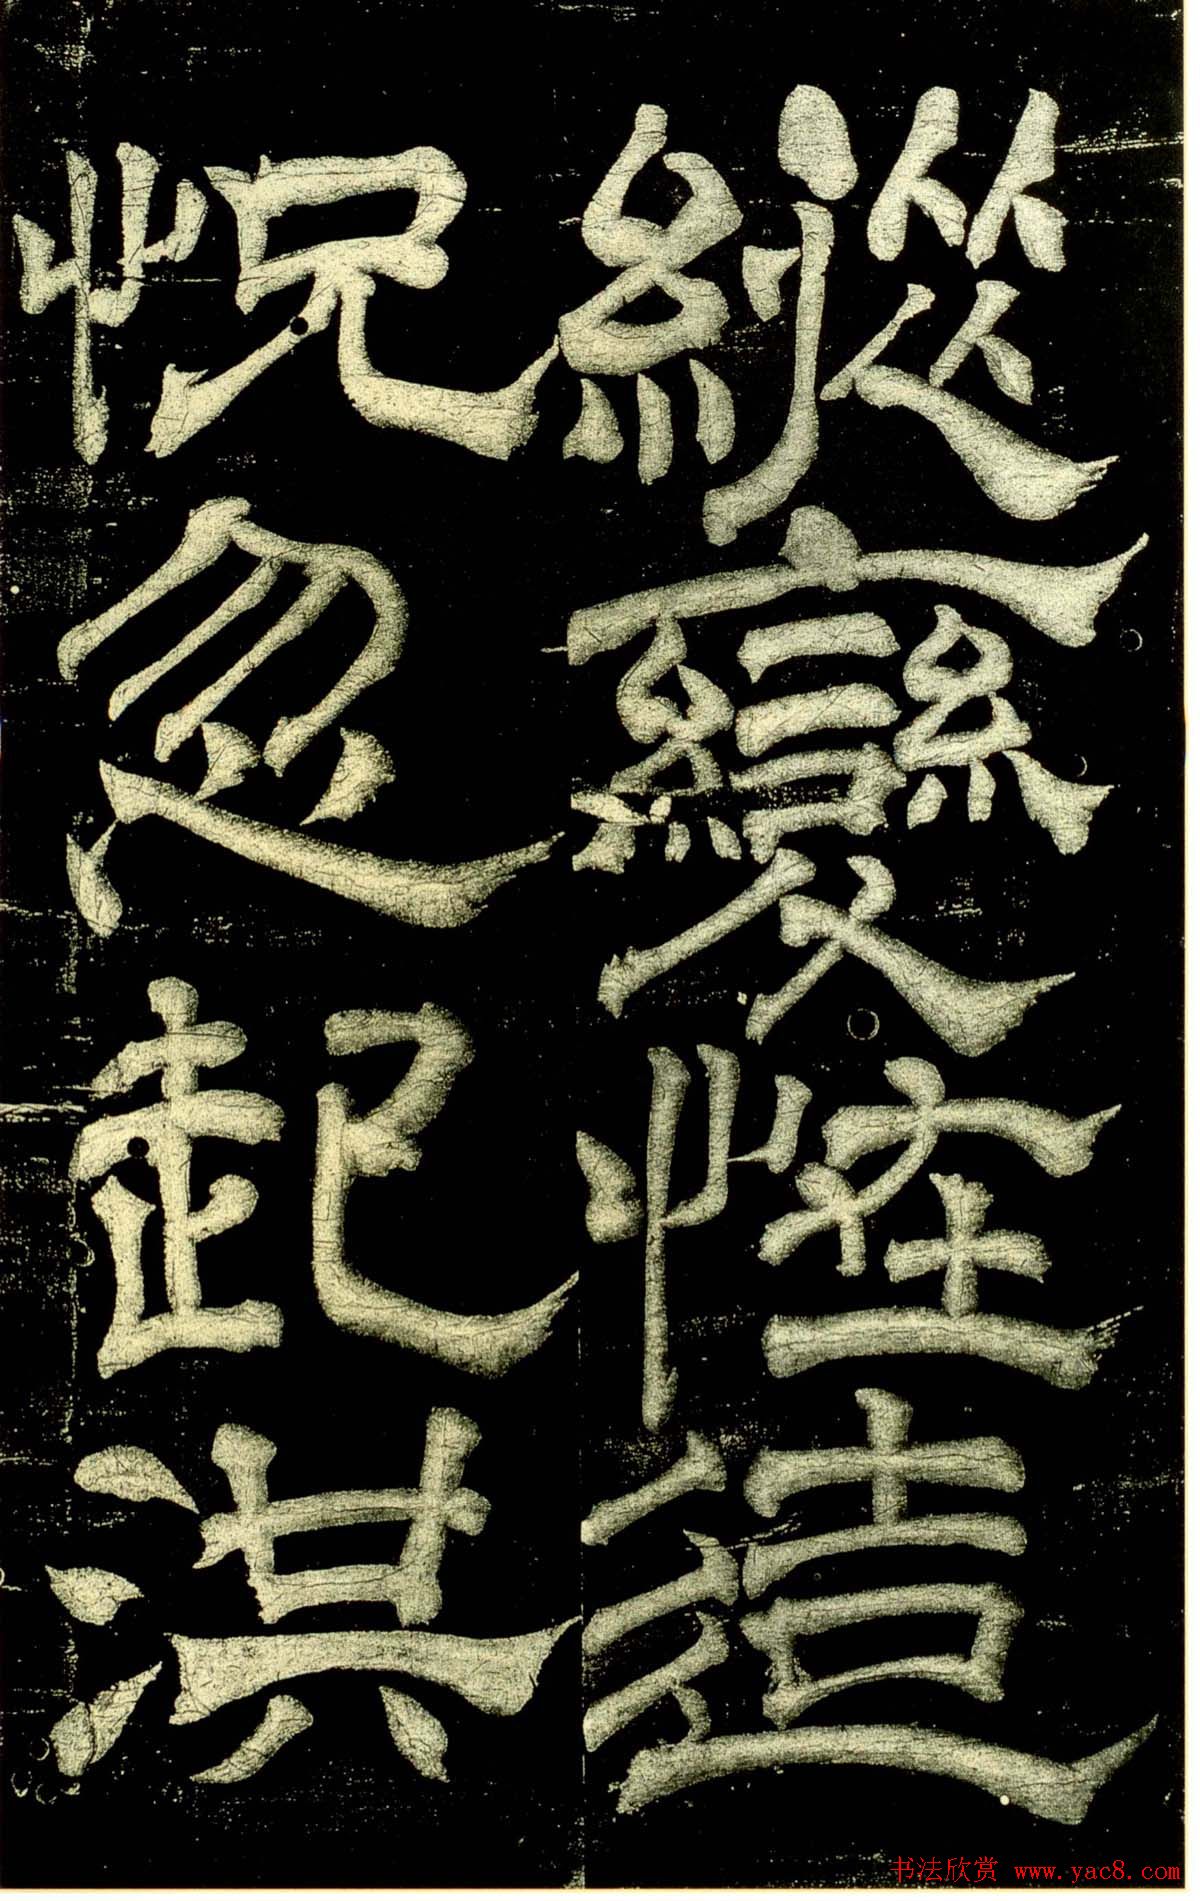 縱變怪造
怳忽起洪
书法欣赏 www.yac8.com